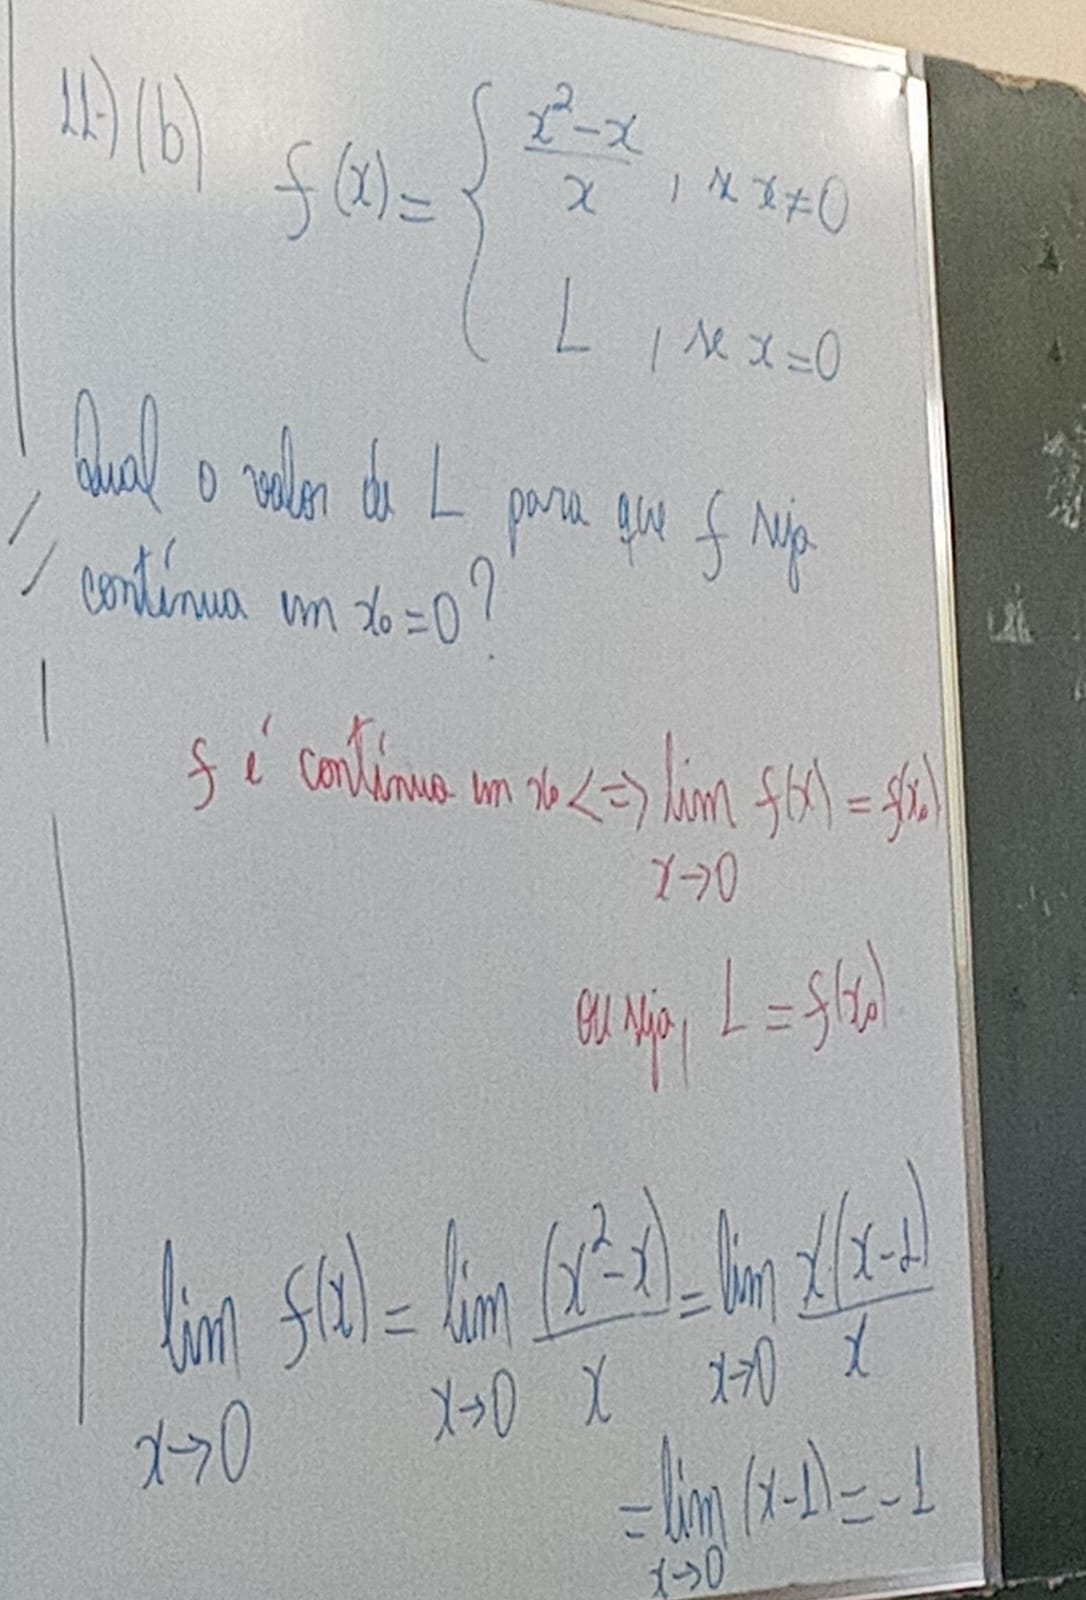 11-)(b) f(x) = { x² - x / x , se x ≠ 0
L , se x = 0
Qual o valor de L para que f seja
contínua em x₀ = 0?
f é contínua em x₀ <=> lim f(x) = f(x₀)
x→0
ou seja, L = f(x₀).
lim f(x) = lim (x² - x) / x = lim x.(x-1) / x
x→0 x→0 x→0
= lim (x-1) = -1
x→0